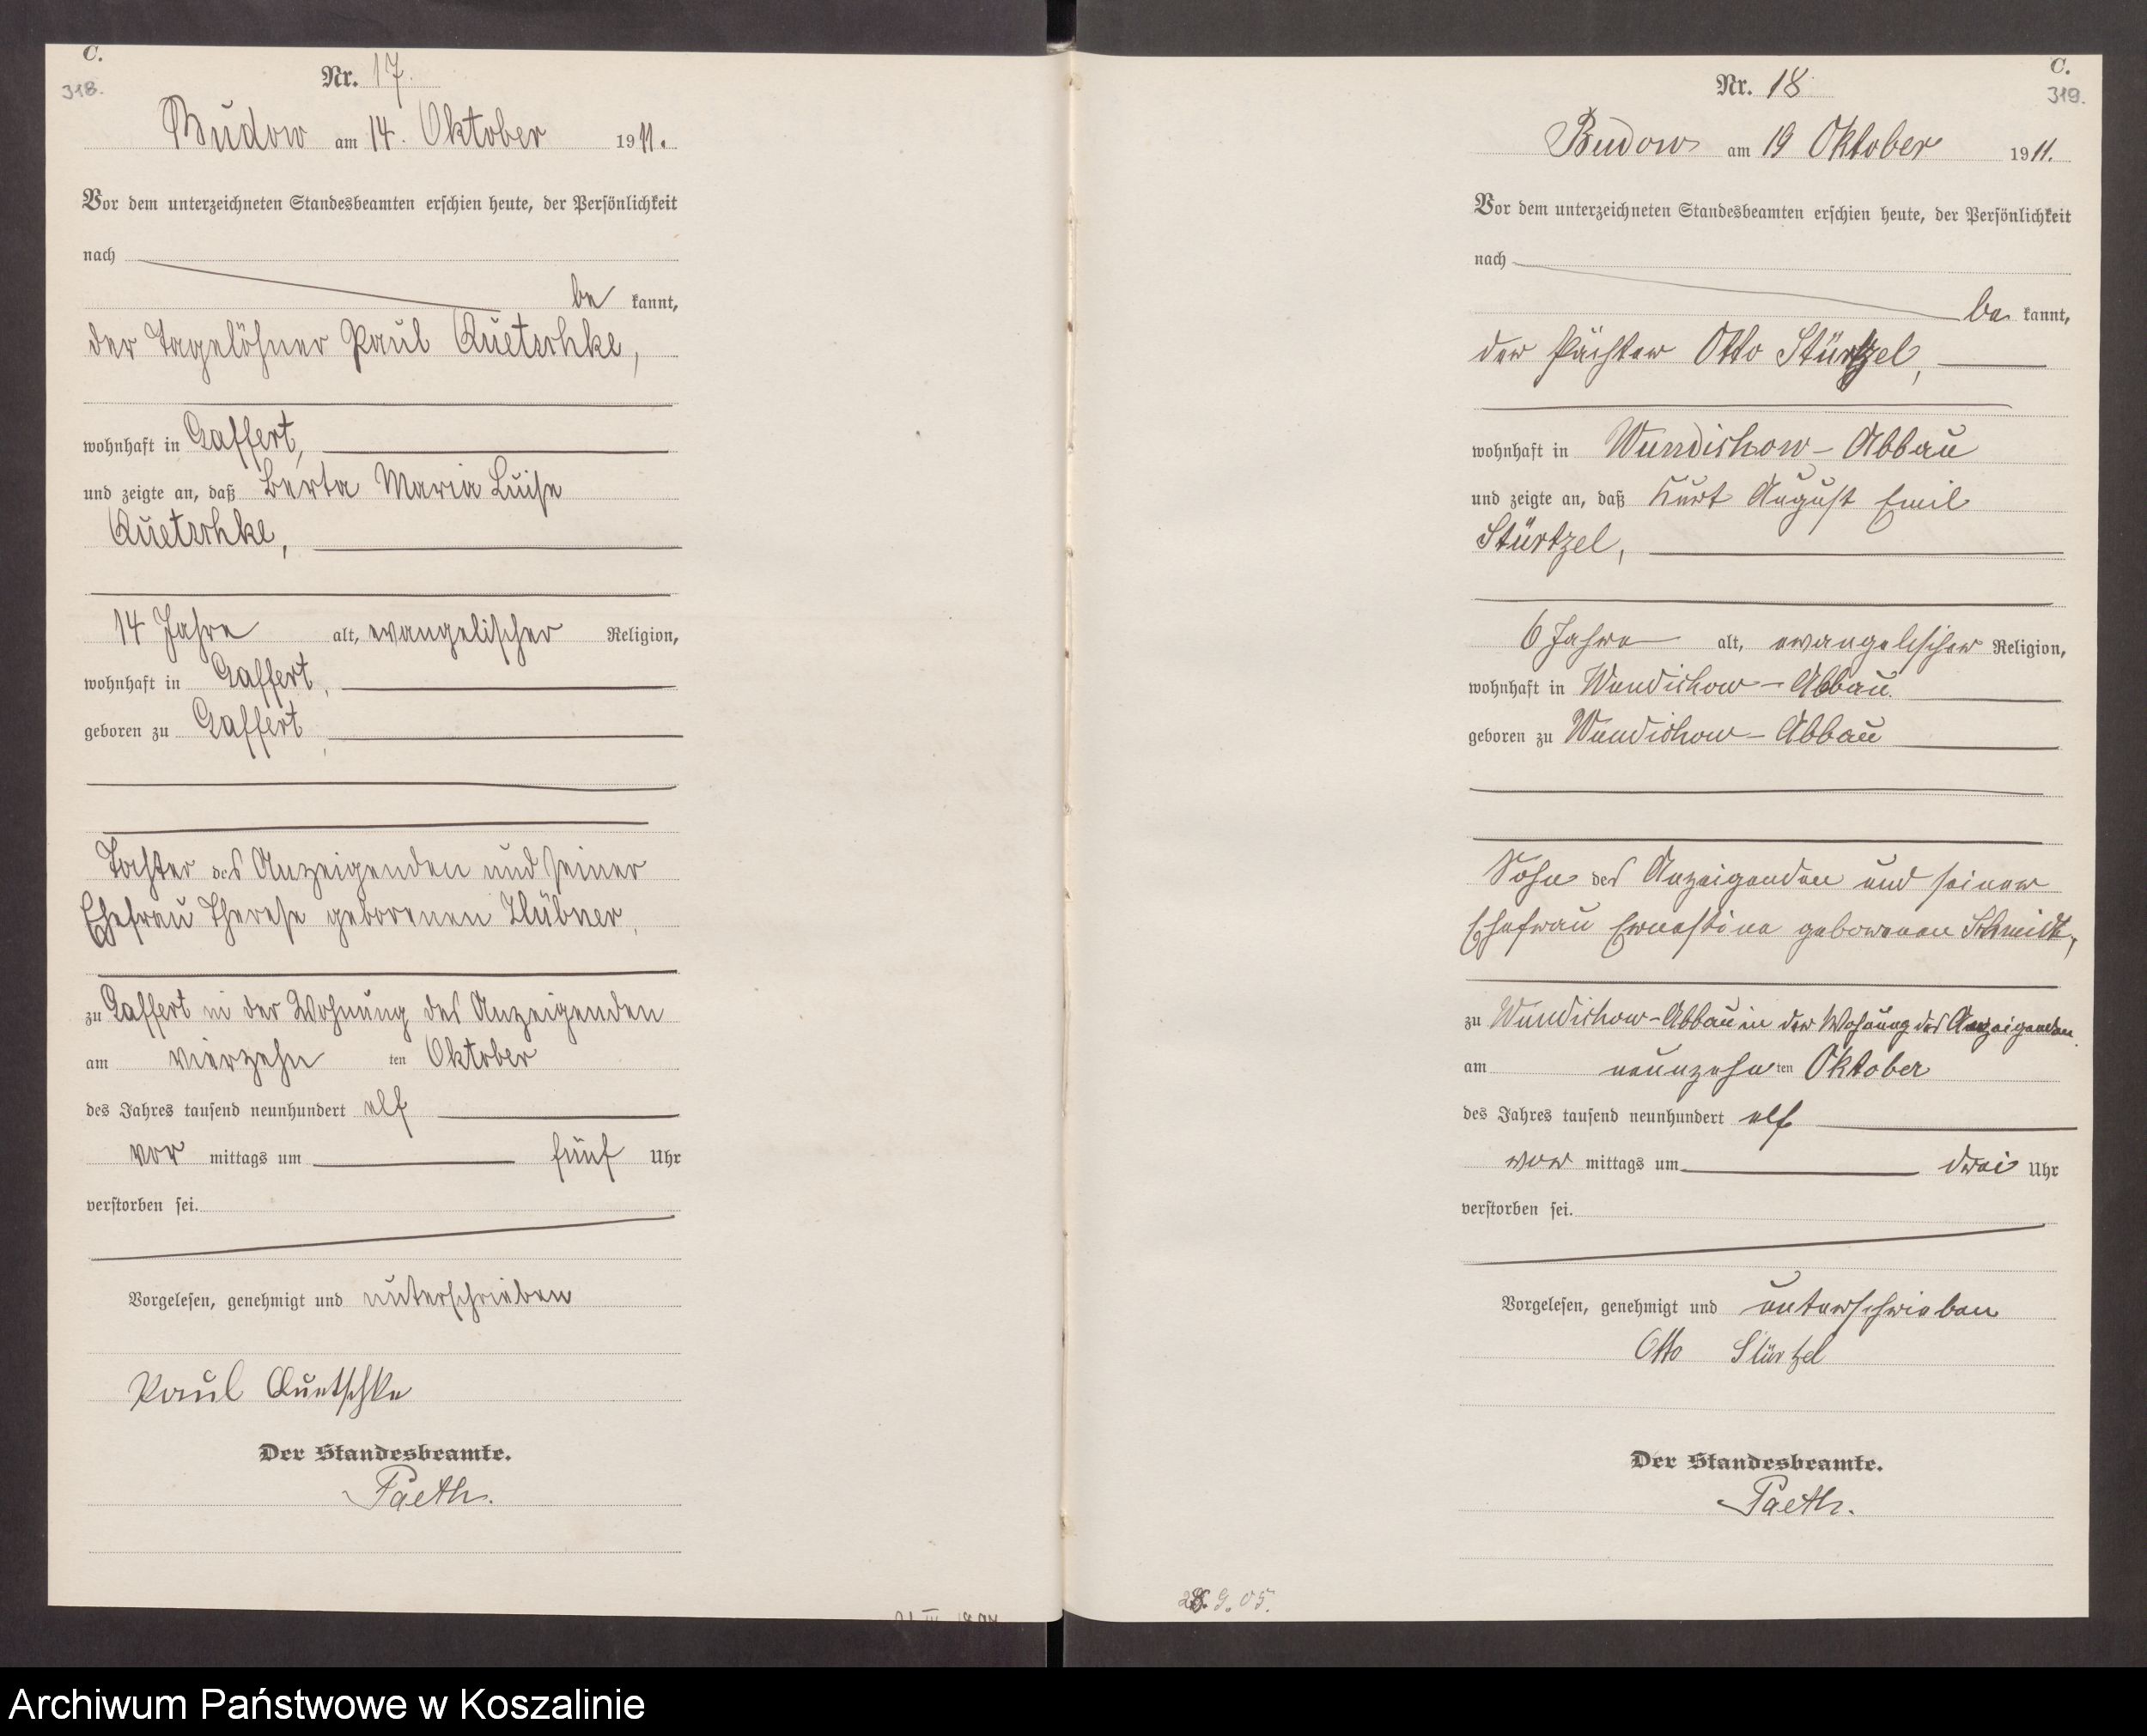 C.
318.
Nr. 17.
Budow am 14. Oktober 1911.
Vor dem unterzeichneten Standesbeamten erschien heute, der Persönlichkeit
nach
be kannt,
der Tagelöhner Paul Quetschke,
wohnhaft in Gaffert,
und zeigte an, daß Berta Maria Luise
Quetschke,
14 Jahre alt, evangelischer Religion,
wohnhaft in Gaffert,
geboren zu Gaffert,
Tochter des Anzeigenden und seiner
Ehefrau Therese geborenen Hübner,
zu Gaffert in der Wohnung des Anzeigenden
am vierzehn ten Oktober
des Jahres tausend neunhundert elf
vor mittags um fünf Uhr
verstorben sei.
Vorgelesen, genehmigt und unterschrieben
Paul Quetschke
Der Standesbeamte.
Paeth.
C.
319.
Nr. 18
Budow am 19 Oktober 1911.
Vor dem unterzeichneten Standesbeamten erschien heute, der Persönlichkeit
nach
be kannt,
der Pächter Otto Stürtzel,
wohnhaft in Wundichow - Abbau
und zeigte an, daß Kurt August Emil
Stürtzel,
6 Jahre alt, evangelischer Religion,
wohnhaft in Wundichow - Abbau.
geboren zu Wundichow - Abbau
Sohn des Anzeigenden und seiner
Ehefrau Ernestine geborenen Schmidt,
zu Wundichow-Abbau in der Wohnung des Anzeigenden
am neunzehn ten Oktober
des Jahres tausend neunhundert elf
vor mittags um drei Uhr
verstorben sei.
Vorgelesen, genehmigt und unterschrieben
Otto Stürtzel
Der Standesbeamte.
Paeth.
28.9.05.
Archiwum Państwowe w Koszalinie